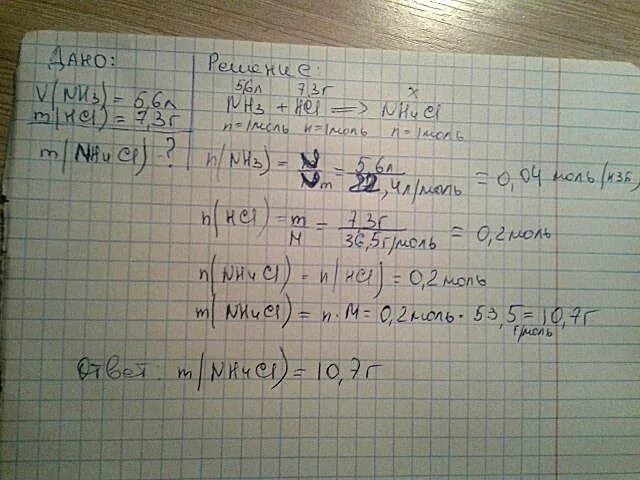 Дано:
V(NH3) = 5,6л
m(HCl) = 7,3г
m(NH4Cl) - ?
Решение:
5,6л 7,3г x
NH3 + HCl => NH4Cl
n=1моль n=1моль n=1моль
n(NH3) = V/Vm = 5,6л/22,4л/моль = 0,04 моль (изб.)
n(HCl) = m/M = 7,3г/36,5г/моль = 0,2моль
n(NH4Cl) = n(HCl) = 0,2моль
m(NH4Cl) = n·M = 0,2моль · 53,5 г/моль = 10,7г
Ответ: m(NH4Cl) = 10,7г